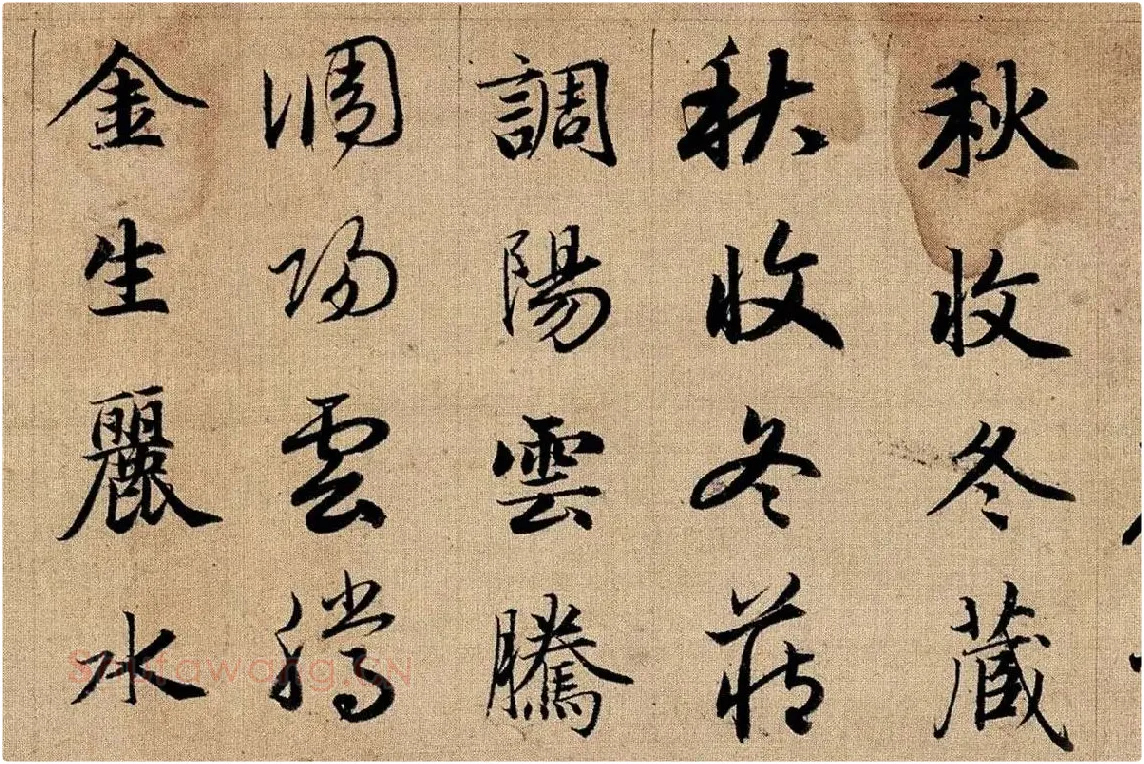 秋收冬藏
秋收冬藏
調陽雲騰
調陽雲騰
金生麗水